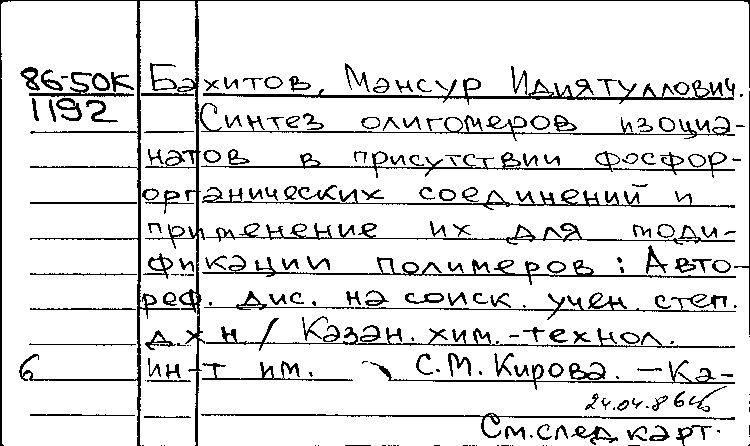 86-50К Бахитов, Мансур Идиятуллович.
1192 Синтез олигомеров изоциа-
натов в присутствии фосфор-
органических соединений и
применение их для моди-
фикации полимеров : Авто-
реф. дис. на соиск. учен. степ.
д х н / Казан. хим.-технол.
6 ин-т им. С.М. Кирова. — Ка-
24.04.86
См.след карт.